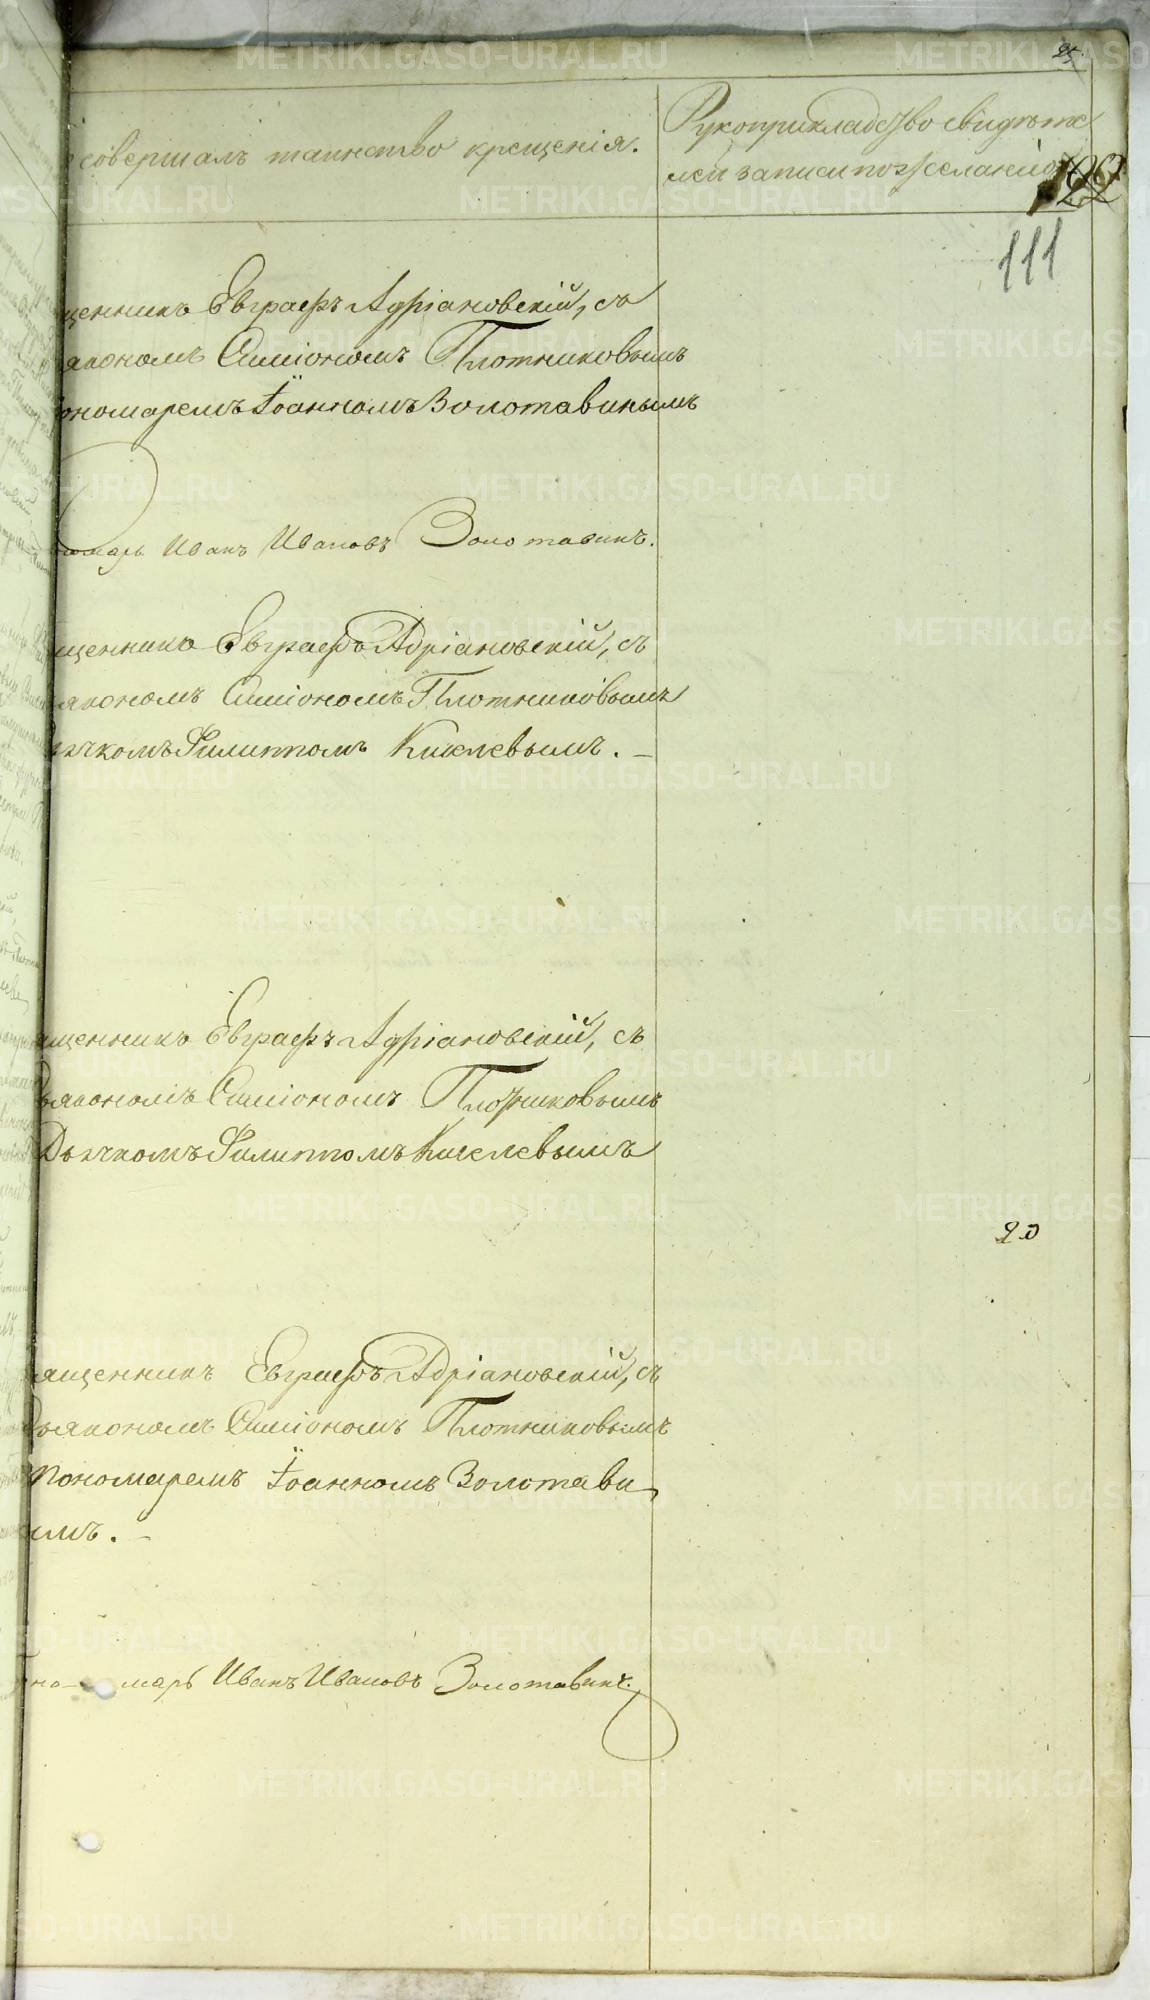 25.
совершалъ таинство крещенія.
Рукоприкладство свидѣте
лей записи по желанію
122
111
щенникъ Евграфъ Адріановскій, съ
якономъ Симіономъ Плотниковымъ
ономаремъ Іоанномъ Золотавинымъ
номарь Иванъ Ивановъ Золотавинъ.
щенникъ Евграфъ Адріановскій, съ
якономъ Симіономъ Плотниковымъ
ячкомъ Филиппомъ Киселевымъ. –
ященникъ Евграфъ Адріановскій, съ
ьякономъ Симіономъ Плотниковымъ
Дьячкомъ Филиппомъ Киселевымъ
20
ященникъ Евграфъ Адріановскій, съ
ьякономъ Симіономъ Плотниковымъ
Пономаремъ Іоанномъ Золотави
ымъ. –
но-марь Иванъ Ивановъ Золотавинъ.
METRIKI.GASO-URAL.RU